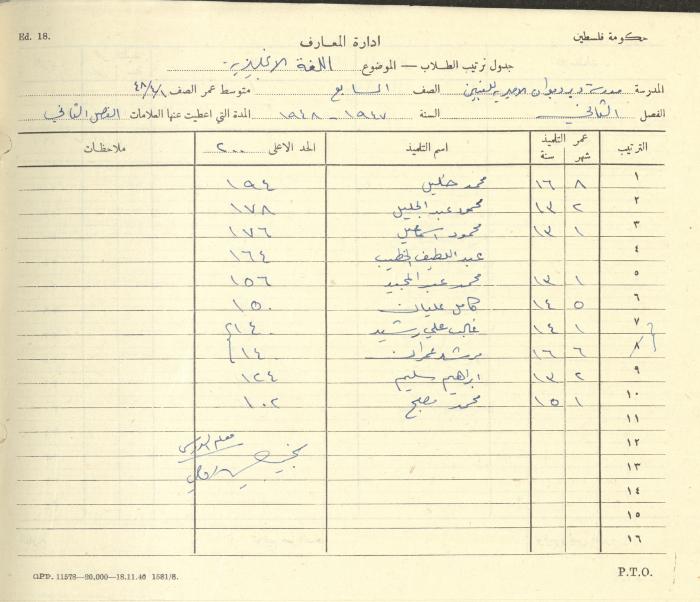 Ed. 18.
حكومة فلسطين
ادارة المعارف
جدول ترتيب الطلاب — الموضوع اللغة الانجليزية
المدرسة مدرسة دير ديوان الاميرية للبنين الصف السابع متوسط عمر الصف ٤٨/٧/١
الفصل الثاني السنة ١٩٤٧ - ١٩٤٨ المدة التي اعطيت عنها العلامات الفصل الثاني
الترتيب عمر التلميذ شهر سنة اسم التلميذ الحد الاعلى ٢٠٠ ملاحظات
١ ٨ ١٦ محمد خليل ١٩٤
٢ ٢ ١٣ محمد عبد الجليل ١٧٨
٣ ١ ١٣ محمود اسماعيل ١٧٦
٤ عبد اللطيف الخطيب ١٦٤
٥ ١ ١٣ محمد عبد المجيد ١٥٦
٦ ٥ ١٤ كامل عليان ١٥٠
٧ ١ ١٤ غالب علي رشيد ١٤٠
٨ ٦ ١٦ مرشد عمران ١٤٠
٩ ٢ ١٣ ابراهيم سليم ١٢٤
١٠ ١ ١٥ محمد مصلح ١٠٢
١١
١٢ معلم الدرس
١٣
١٤
١٥
١٦
G.P.D. 11578—20,000—18.11.46 1581/8.
P.T.O.